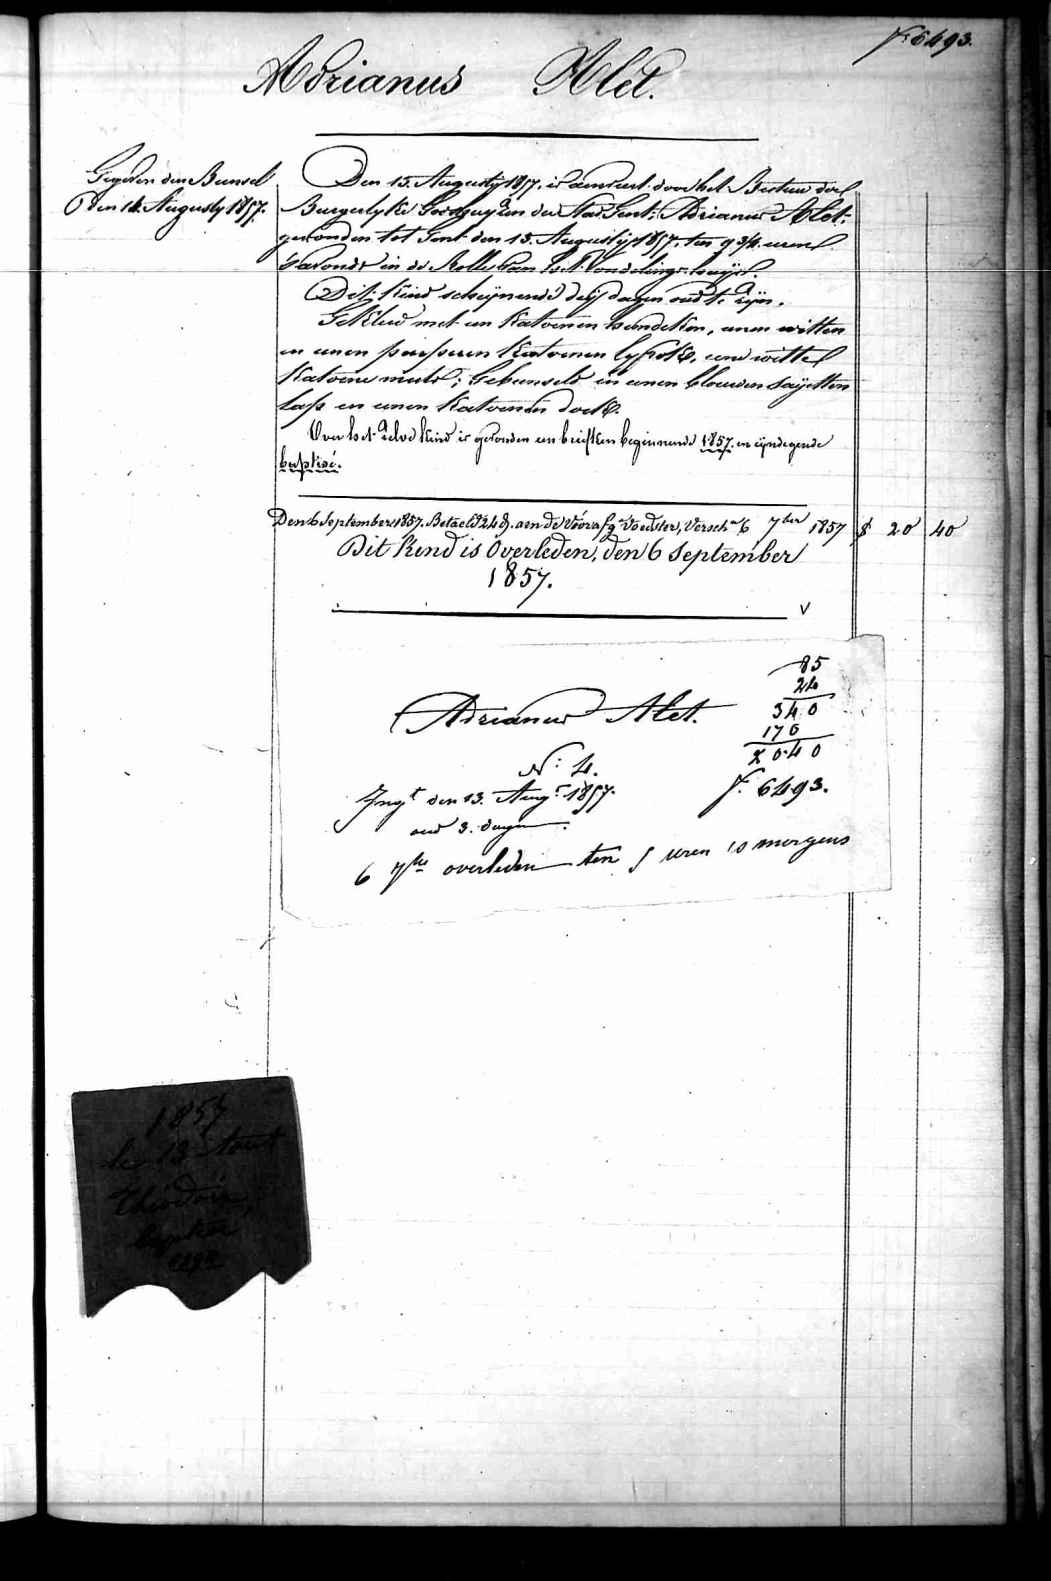 F. 6493.
Adrianus Alet.
Gegeven den Bunsel
Den 14. Augusty 1857.
Den 13. Augusty 1857, is aenveert door het Bestuer der
Burgerlyke Godshuyzen der Stad Gent: Adrianus Alet:
gevonden tot Gent den 13. Augusty 1857, ten 9 3/4 uren
's avonds in de Rolle van het Vondelings-huys.
Dit Kind schynende dry dagen oud te zyn.
Gekleed met een Katoenen hemdeken, eenen witten
en eenen purperen Katoenen lyfrok, eene witte
Katoene muts; Gebunseld in eenen blauwen Sayetten
lap en eenen Katoenen doek.
Over het zelve Kind is gevonden een briefken beginnende 1857. en eyndegende
baptisé.
Den 6 September 1857. Betaeld 24 d. aen de Voedster, Versch. 6 7ber 1857 $ 20 40
Dit Kend is Overleden, den 6 September
1857.
V
85
24
340
170
2040
Adrianus Alet.
N: 4.
F. 6493.
Ingt. den 13. Augt. 1857.
oud 3. dagen.
6 7bre overleden ten 5 uren 10 morgens
1857
le 13 Aout